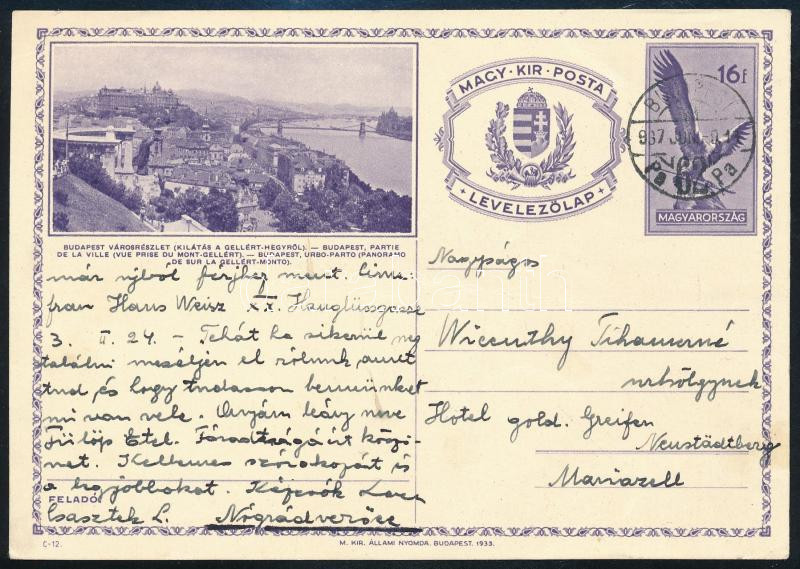 MAGY·KIR·POSTA
LEVELEZŐLAP
16 f
937 JUN
62
Pa Pa
MAGYARORSZÁG
BUDAPEST VÁROSRÉSZLET (KILÁTÁS A GELLÉRT-HEGYRŐL). — BUDAPEST, PARTIE
DE LA VILLE (VUE PRISE DU MONT-GELLÉRT). — BUDAPEST, URBO-PARTO (PANORAMO
DE SUR LA GELLÉRT-MONTO).
már ujból férjhez ment. Címe:
frau Hans Weisz XX.
3. II. 24. — Tehát ha sikerül meg
találni meséljen el rólunk amit
tud és hogy tudasson bennünket
mi van vele. Anyám leány neve
Fülöp Etel. Fáradtságáért köszö-
net. Kellemes szórakozást és
a legjobbakat. Kézcsók
FELADÓ:
Csasztek L. Nógrádverőce
Nagyságos
Tihamérné
urhölgynek
Hotel gold. Greifen
Neustädtberg
Mariazell
C-12.
M. KIR. ÁLLAMI NYOMDA. BUDAPEST. 1933.